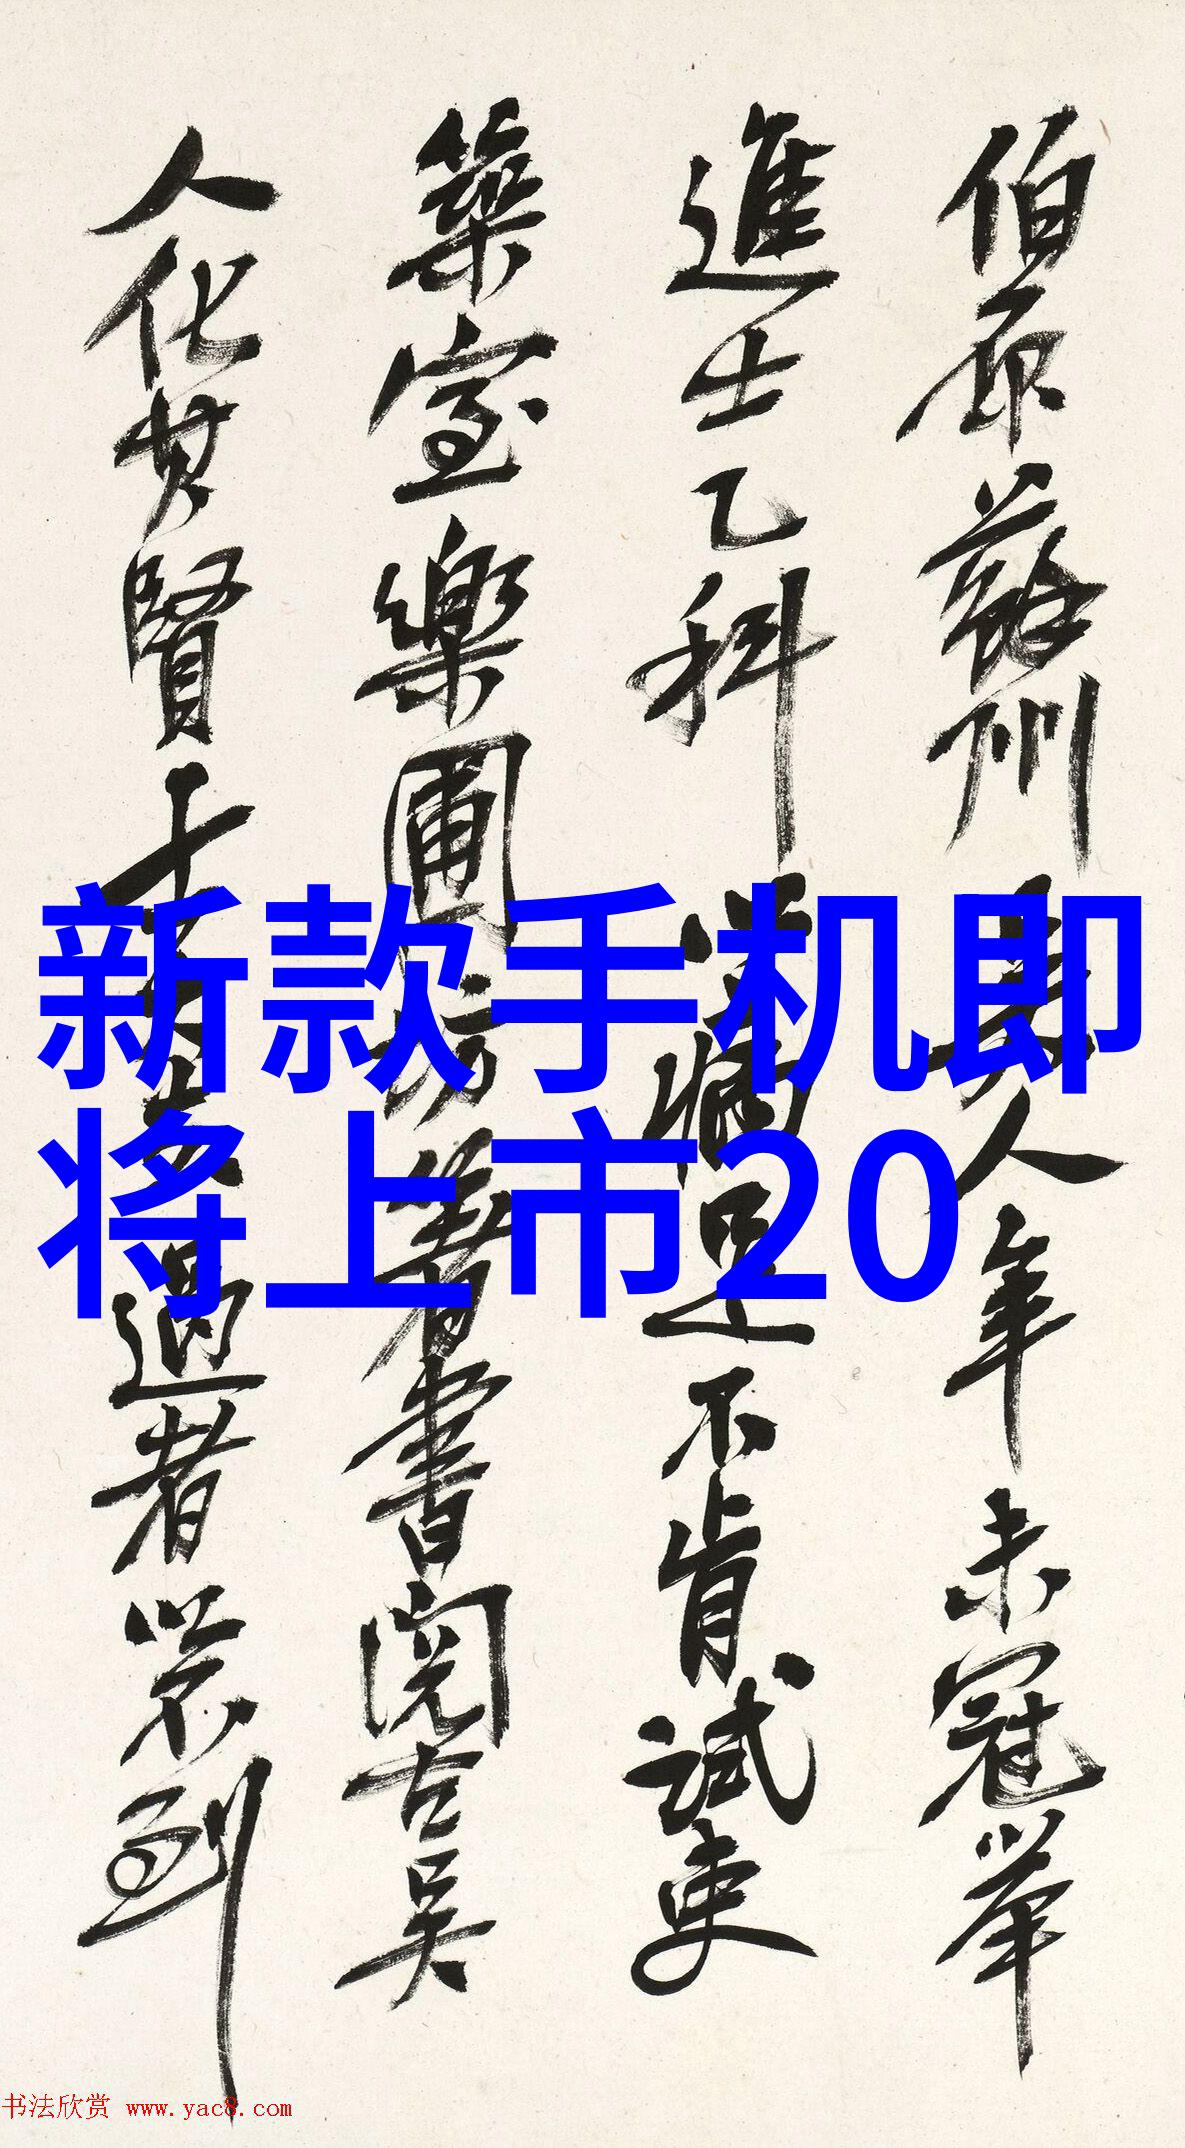 伯原蘇州長人年未冠舉
進士乙科 病足不肯試吏
築室樂圃坊著書閱古吳
人化其賢士大夫過者以不到
新款手机即
将上市20
书法欣赏 www.yac8.com